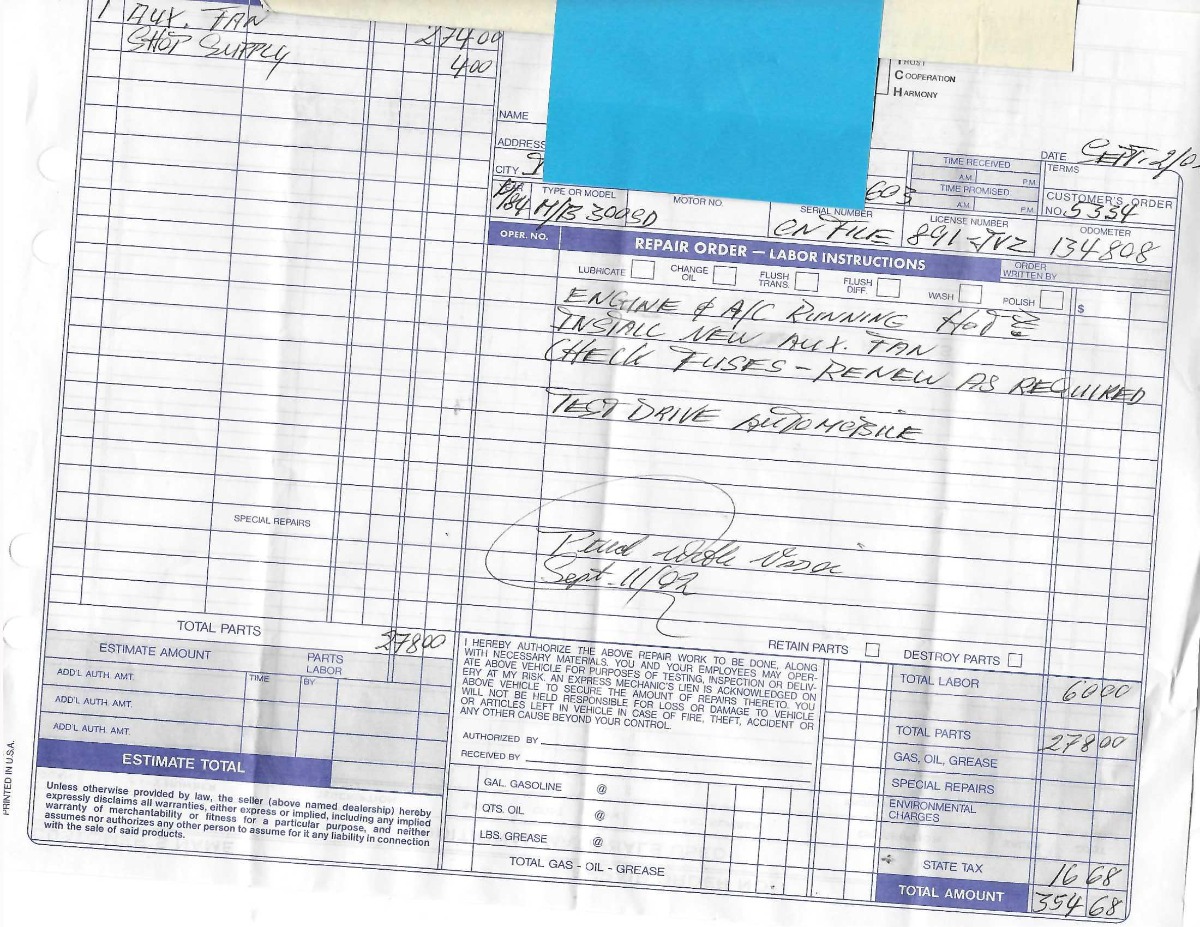 1 AUX. FAN 274 00
SHOP SUPPLY 4 00
TRUST
COOPERATION
HARMONY
NAME
ADDRESS
CITY
DATE SEPT. 2/0
TERMS
TIME RECEIVED
A.M. P.M.
TIME PROMISED
A.M. P.M.
CUSTOMER'S ORDER
NO. 5334
603
TYPE OR MODEL
MOTOR NO.
SERIAL NUMBER
LICENSE NUMBER
ODOMETER
84 M/B 300SD
ON FILE
891-JVZ
134808
OPER. NO.
REPAIR ORDER — LABOR INSTRUCTIONS
ORDER WRITTEN BY
LUBRICATE
CHANGE OIL
FLUSH TRANS.
FLUSH DIFF.
WASH
POLISH
$
ENGINE & A/C RUNNING HOT
INSTALL NEW AUX. FAN
CHECK FUSES - RENEW AS REQUIRED
TEST DRIVE AUTOMOBILE
SPECIAL REPAIRS
Paid with Visa
Sept. 11/02
TOTAL PARTS 278 00
ESTIMATE AMOUNT
PARTS
LABOR
ADD'L AUTH. AMT.
TIME
BY
ADD'L AUTH. AMT.
ADD'L AUTH. AMT.
ESTIMATE TOTAL
Unless otherwise provided by law, the seller (above named dealership) hereby
expressly disclaims all warranties, either express or implied, including any implied
warranty of merchantability or fitness for a particular purpose, and neither
assumes nor authorizes any other person to assume for it any liability in connection
with the sale of said products.
PRINTED IN U.S.A.
I HEREBY AUTHORIZE THE ABOVE REPAIR WORK TO BE DONE, ALONG
WITH NECESSARY MATERIALS. YOU AND YOUR EMPLOYEES MAY OPER-
ATE ABOVE VEHICLE FOR PURPOSES OF TESTING, INSPECTION OR DELIV-
ERY AT MY RISK. AN EXPRESS MECHANIC'S LIEN IS ACKNOWLEDGED ON
ABOVE VEHICLE TO SECURE THE AMOUNT OF REPAIRS THERETO. YOU
WILL NOT BE HELD RESPONSIBLE FOR LOSS OR DAMAGE TO VEHICLE
OR ARTICLES LEFT IN VEHICLE IN CASE OF FIRE, THEFT, ACCIDENT OR
ANY OTHER CAUSE BEYOND YOUR CONTROL.
AUTHORIZED BY
RECEIVED BY
GAL. GASOLINE @
QTS. OIL @
LBS. GREASE @
TOTAL GAS - OIL - GREASE
RETAIN PARTS
DESTROY PARTS
TOTAL LABOR 60 00
TOTAL PARTS 278 00
GAS, OIL, GREASE
SPECIAL REPAIRS
ENVIRONMENTAL
CHARGES
STATE TAX 16 68
TOTAL AMOUNT 354 68